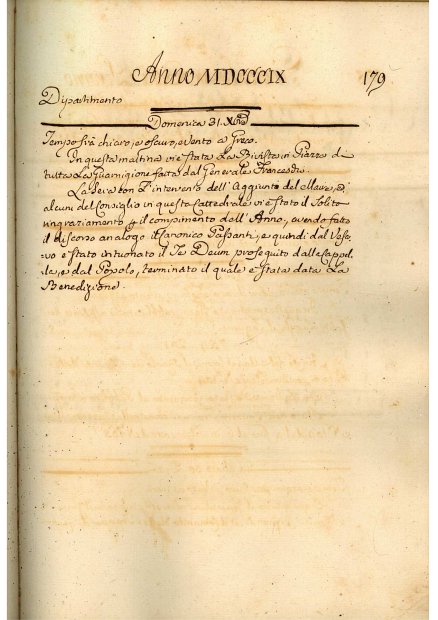 Anno MDCCCIX
179
Dipartimento
Domenica 31. Xbre
Tempo frà chiaro, e oscuro, e vento a Greco.
In questa mattina vi è stata La Rivista in Piazza di
tutta La Guarnigione fatta dal Generale Franceschi.
La sera con l'intervento dell'Aggiunto del Maire, e di
alcuni del Consiglio in questa Cattedrale vi è stato il Solito
ringraziamento p il compimento dell'Anno, avendo fatto
il discorso analogo il Canonico Passanti, e quindi dal Vesco
vo è stato intuonato il Te Deum proseguito dalle Cappel
le, e dal Popolo, terminato il quale è stata data La
Benedizione.